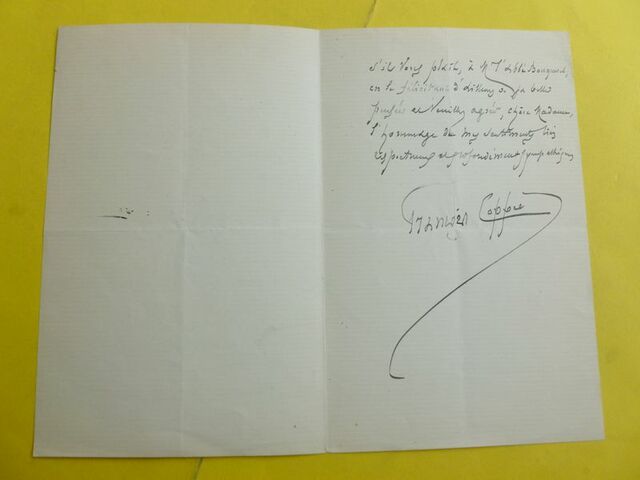 s'il vous plaît, à M. l'abbé Bouquard,
en le félicitant d' sa belle
pensée et veuillez agréer, chère Madame,
l'hommage de mes sentiments très
respectueux et profondément sympathiques
François Coppée